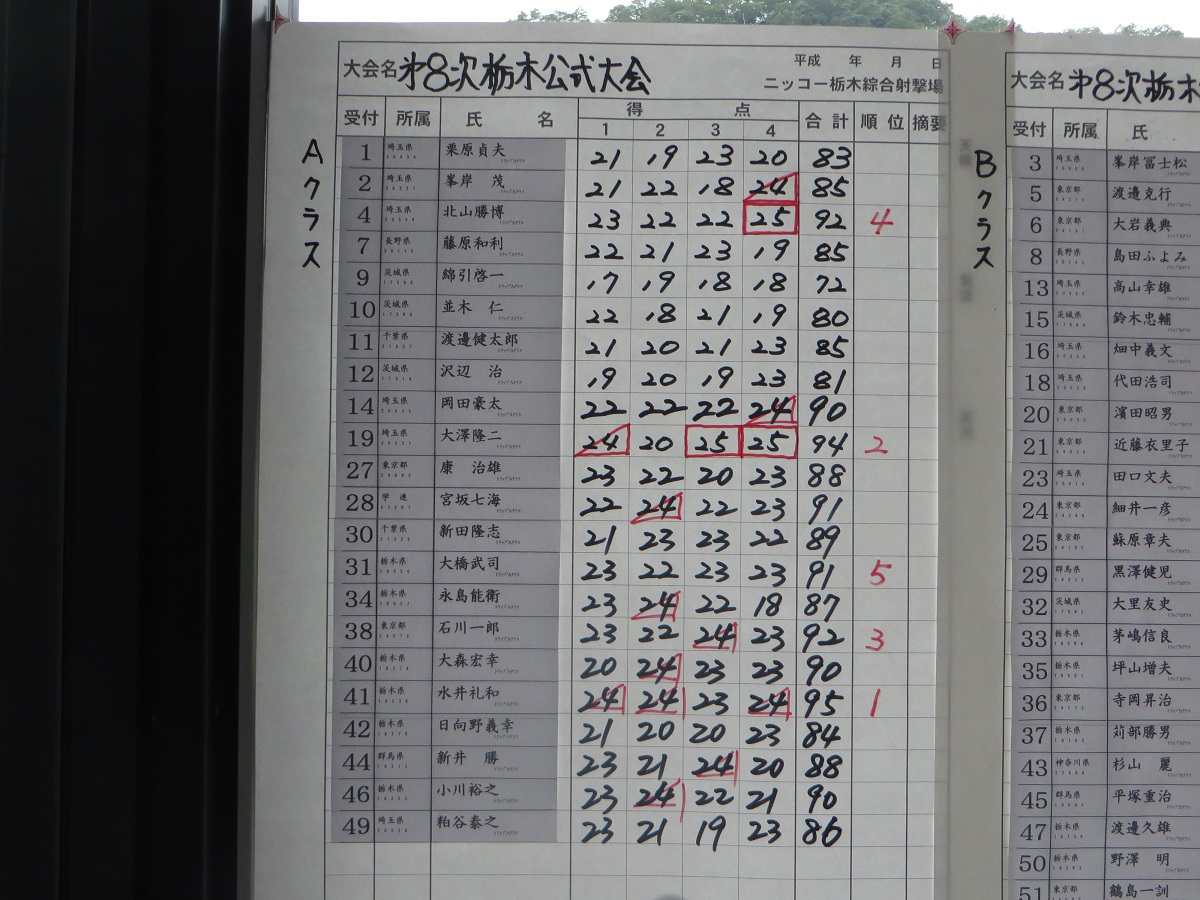 大会名 第8次栃木公式大会 平成 年 月 日
ニッコー栃木綜合射撃場
受付 所属 氏 名 得 点 合計 順位 摘要
1 2 3 4
Aクラス
1 埼玉県 栗原貞夫 21 19 23 20 83
2 埼玉県 峯岸 茂 21 22 18 24 85
4 埼玉県 北山勝博 23 22 22 25 92 4
7 長野県 藤原和利 22 21 23 19 85
9 茨城県 綿引啓一 17 19 18 18 72
10 茨城県 並木 仁 22 18 21 19 80
11 千葉県 渡邊健太郎 21 20 21 23 85
12 茨城県 沢辺 治 19 20 19 23 81
14 埼玉県 岡田豪太 22 22 22 24 90
19 埼玉県 大澤隆二 24 20 25 25 94 2
27 東京都 康 治雄 23 22 20 23 88
28 学連 宮坂七海 22 24 22 23 91
30 千葉県 新田隆志 21 23 23 22 89
31 栃木県 大橋武司 23 22 23 23 91 5
34 栃木県 永島能衛 23 24 22 18 87
38 東京都 石川一郎 23 22 24 23 92 3
40 栃木県 大森宏幸 20 24 23 23 90
41 栃木県 水井礼和 24 24 23 24 95 1
42 栃木県 日向野義幸 21 20 20 23 84
44 群馬県 新井 勝 23 21 24 20 88
46 栃木県 小川裕之 23 24 22 21 90
49 埼玉県 粕谷泰之 23 21 19 23 86
大会名 第8次栃木
受付 所属 氏
Bクラス
3 埼玉県 峯岸冨士松
5 東京都 渡邉克行
6 東京都 大岩義典
8 長野県 島田ふよみ
13 埼玉県 高山幸雄
15 茨城県 鈴木忠輔
16 埼玉県 畑中義文
18 埼玉県 代田浩司
20 東京都 濱田昭男
21 東京都 近藤衣里子
23 埼玉県 田口文夫
24 東京都 細井一彦
25 東京都 蘇原章夫
29 群馬県 黒澤健児
32 茨城県 大里友史
33 栃木県 茅嶋信良
35 栃木県 坪山増夫
36 東京都 寺岡昇治
37 栃木県 苅部勝男
43 神奈川県 杉山 麗
45 群馬県 平塚重治
47 栃木県 渡邊久雄
50 栃木県 野澤 明
51 東京都 鶴島一訓